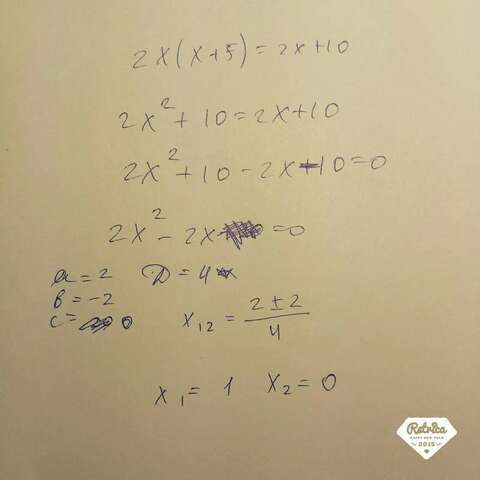 2x(x+5)=2x+10
2x²+10=2x+10
2x²+10-2x-10=0
2x²-2x=0
a=2 D=4
b=-2
c=0
x₁₂=(2±2)/4
x₁=1 x₂=0
Retrica
HAPPY NEW YEAR
2015